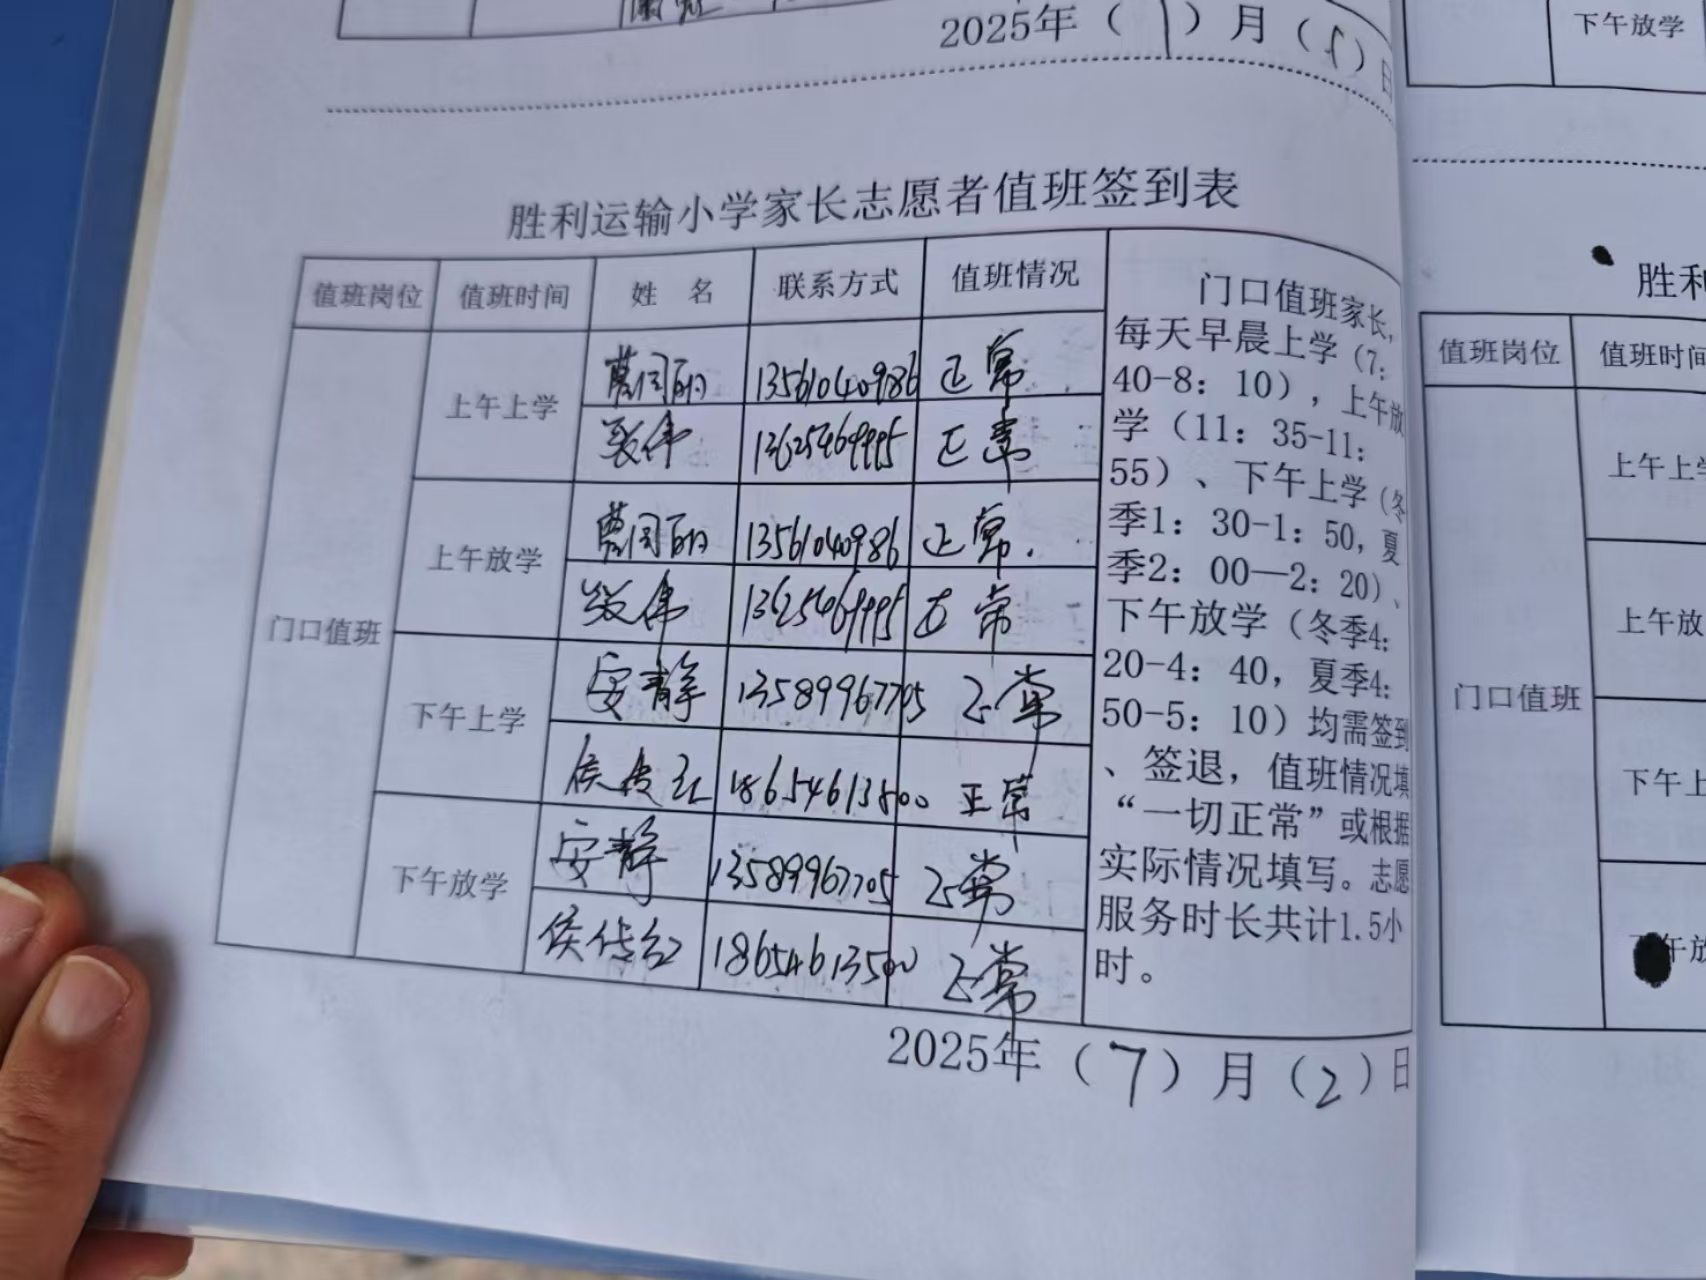 2025年（7）月（1）日
下午放学
胜利运输小学家长志愿者值班签到表
值班岗位 值班时间 姓 名 联系方式 值班情况
门口值班
上午上学 13561040986 正常
张伟 13625469995 正常
上午放学 13561040986 正常.
张伟 13625469995 正常
下午上学 安静 13589967705 正常
侯传红 18654613500 正常
下午放学 安静 13589967705 正常
侯传红 18654613500 正常
门口值班家长，
每天早晨上学（7：
40-8：10），上午放
学（11：35-11：
55）、下午上学（冬
季1：30-1：50，夏
季2：00—2：20）、
下午放学（冬季4：
20-4：40，夏季4：
50-5：10）均需签到
、签退，值班情况填
“一切正常”或根据
实际情况填写。志愿
服务时长共计1.5小
时。
2025年（7）月（2）日
胜利
值班岗位 值班时间
门口值班
上午上学
上午放
下午上
下午放